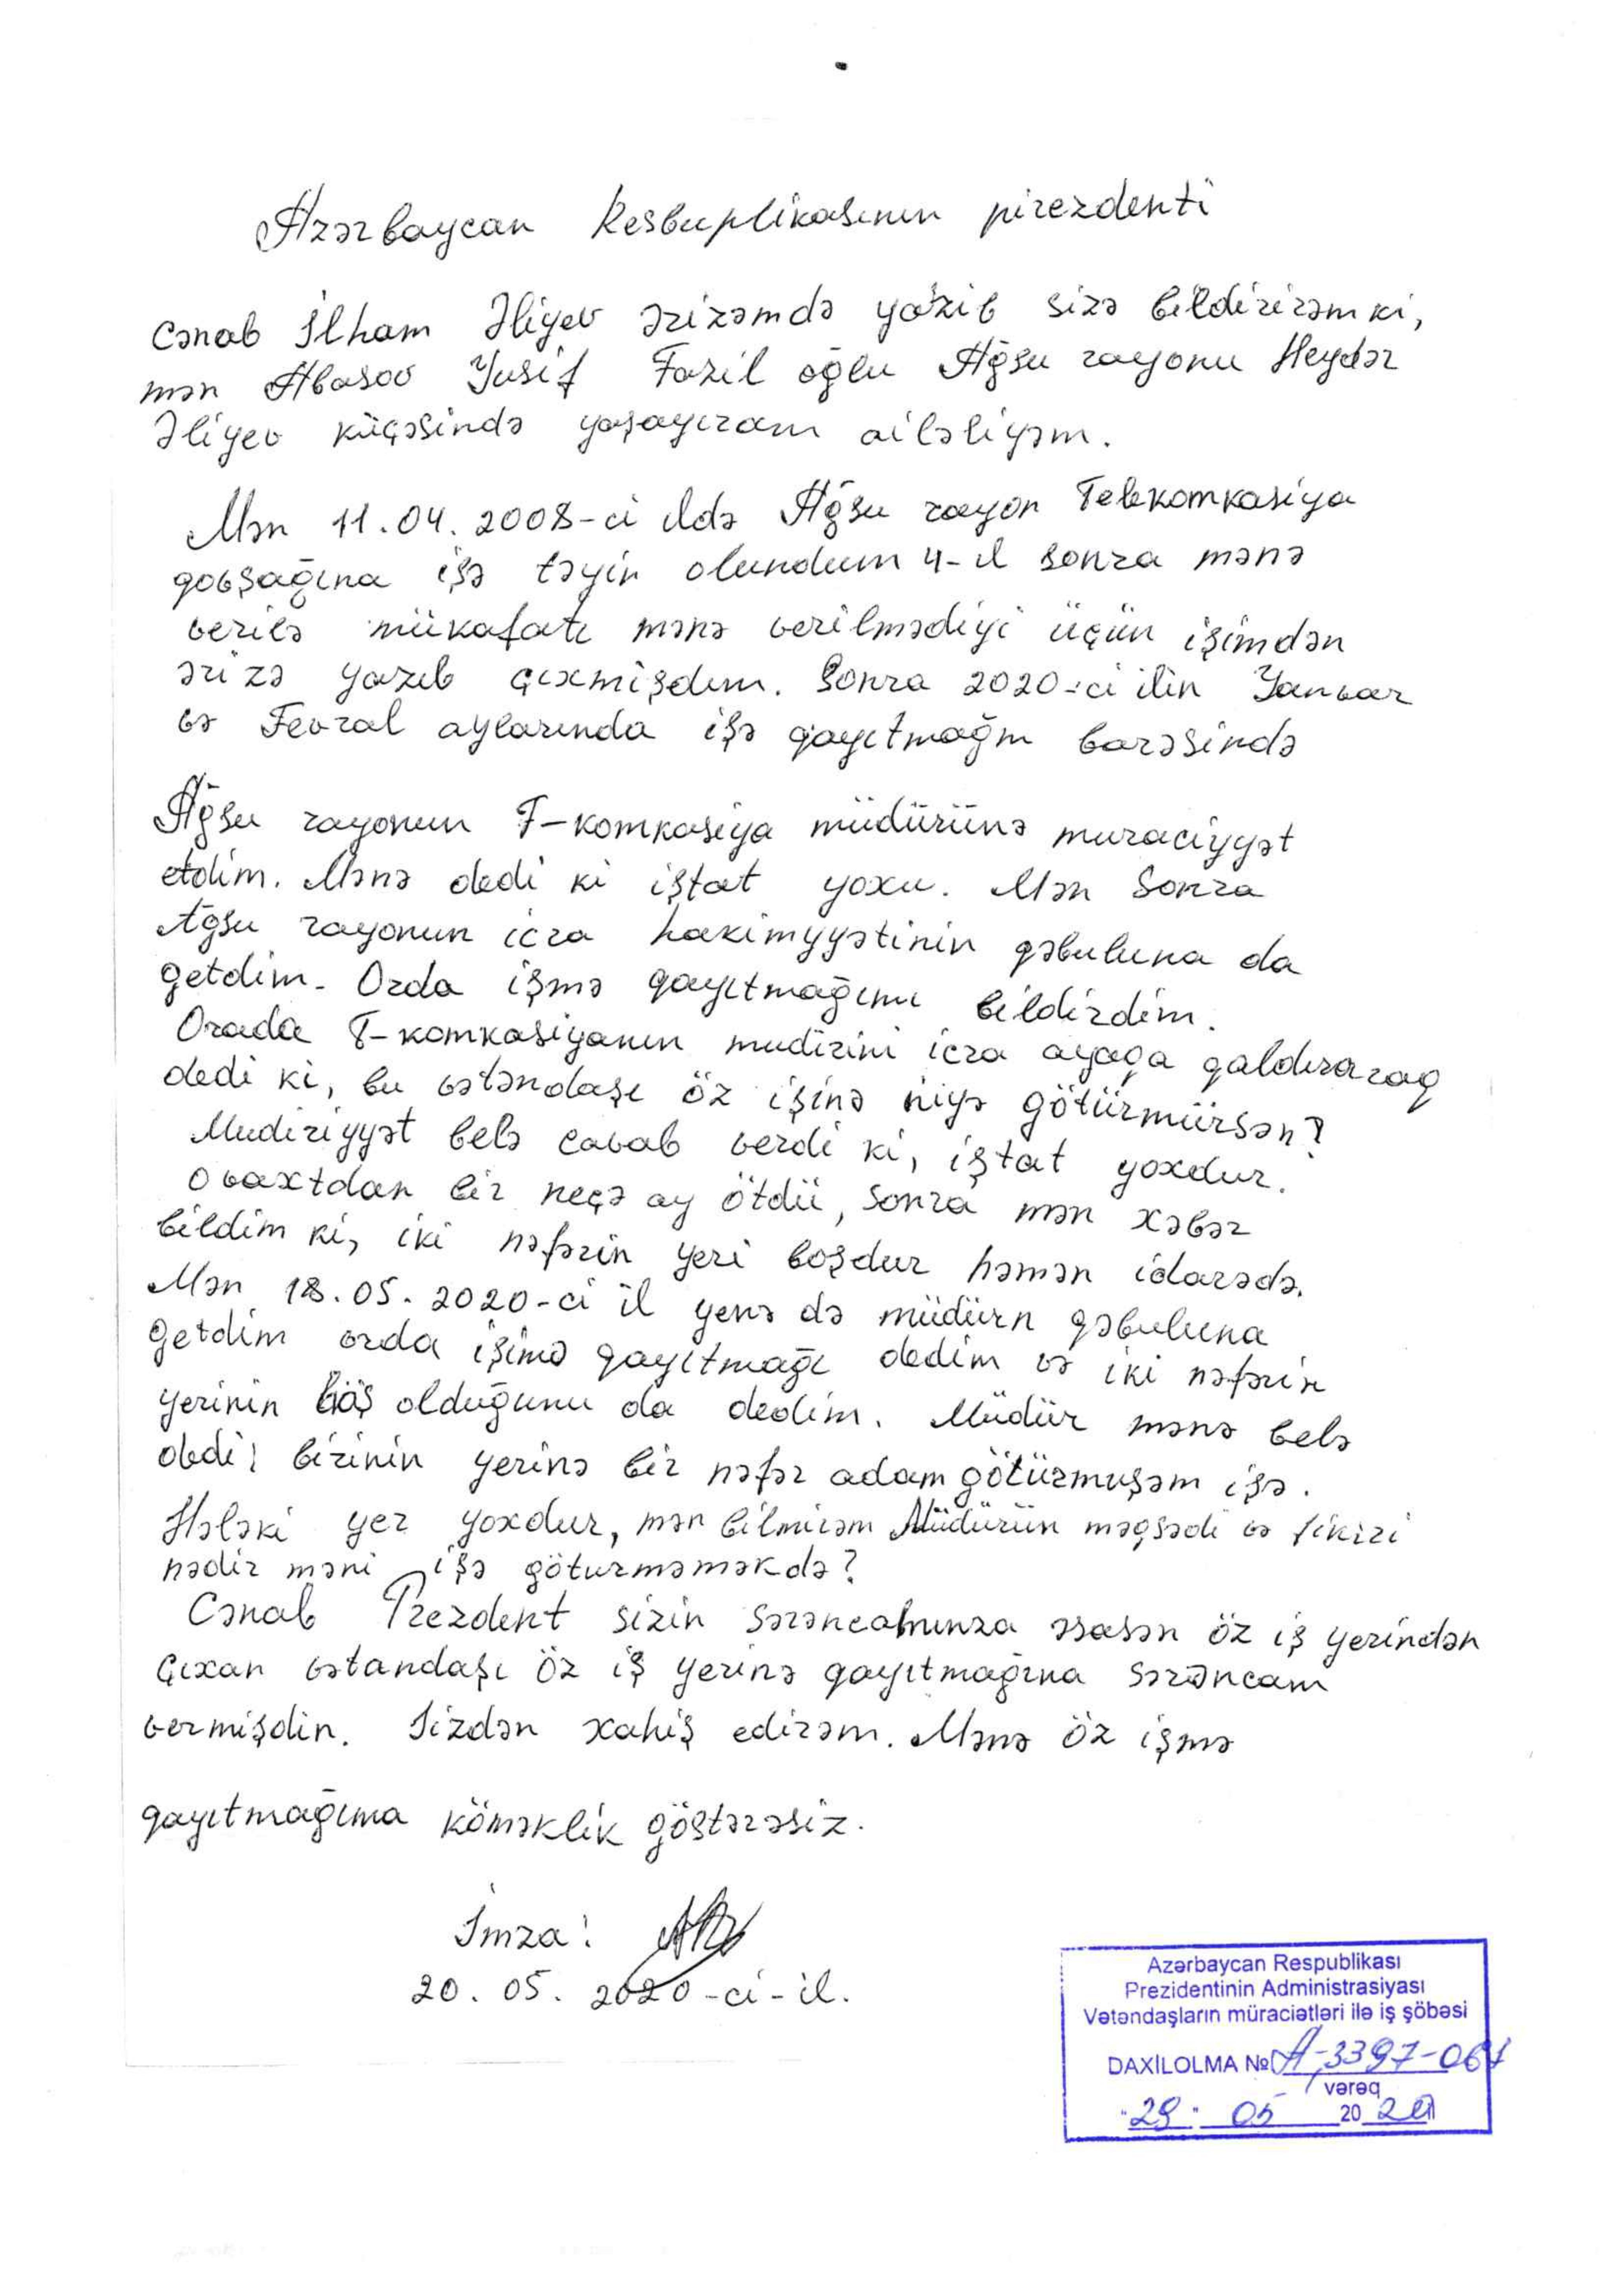 Azərbaycan Resbuplikasının pirezdenti
Cənab İlham Əliyev ərizəmdə yazib sizə bildirirəm ki,
mən Abasov Yusif Fazil oğlu Ağsu rayonu Heydər
Əliyev küçəsində yaşayıram ailəliyəm.
Mən 11.04.2008-ci ildə Ağsu rayon Telekomkasiya
qovşağına işə təyin olundum 4-il sonra mənə
verilə mükafatı mənə verilmədiyi üçün işimdən
ərizə yazıb çıxmişdım. Sonra 2020-ci ilin Yanvar
və Fevral aylarında işə qayıtmağm barəsində
Ağsu rayonun T-komkasiya müdürünə muraciyyət
etdim. Mənə dedi ki iştat yoxu. Mən Sonra
Ağsu rayonun icra hakimyyətinin qəbuluna da
getdim. Orda işmə qayıtmağımı bildirdim.
Orada T-komkasiyanın mudirini icra ayaga qaldıraraq
dedi ki, bu vətəndaşı öz işinə niyə götürmürsən?
Mudiriyyət belə cavab verdi ki, iştat yoxdur.
O vaxtdan bir neçə ay ötdü, sonra mən xəbər
bildim ki, iki nəfərin yeri boşdur həmən idarədə.
Mən 18.05.2020-ci il yenə də müdürn qəbuluna
getdim orda işimə qayıtmağı dedim və iki nəfərin
yerinin boş olduğunu da dedim. Müdür mənə belə
dedi: birinin yerinə bir nəfər adam götürmuşəm işə.
Hələki yer yoxdur, mən bilmirəm Müdürün məqsədi və fikiri
nədir məni işə göturməməkdə?
Cənab Prezdent sizin sərəncamınıza əsasən öz iş yerindən
çıxan vətandaşı öz iş yerinə qayıtmağına sərəncam
vermişdin. Sizdən xahiş edirəm. Mənə öz işmə
qayıtmağıma köməklik göstərəsiz.
İmza:
20.05.2020-ci-il.
Azərbaycan Respublikası
Prezidentinin Administrasiyası
Vətəndaşların müraciətləri ilə iş şöbəsi
DAXİLOLMA № A-3397-06
vərəq
"29" 05 2020